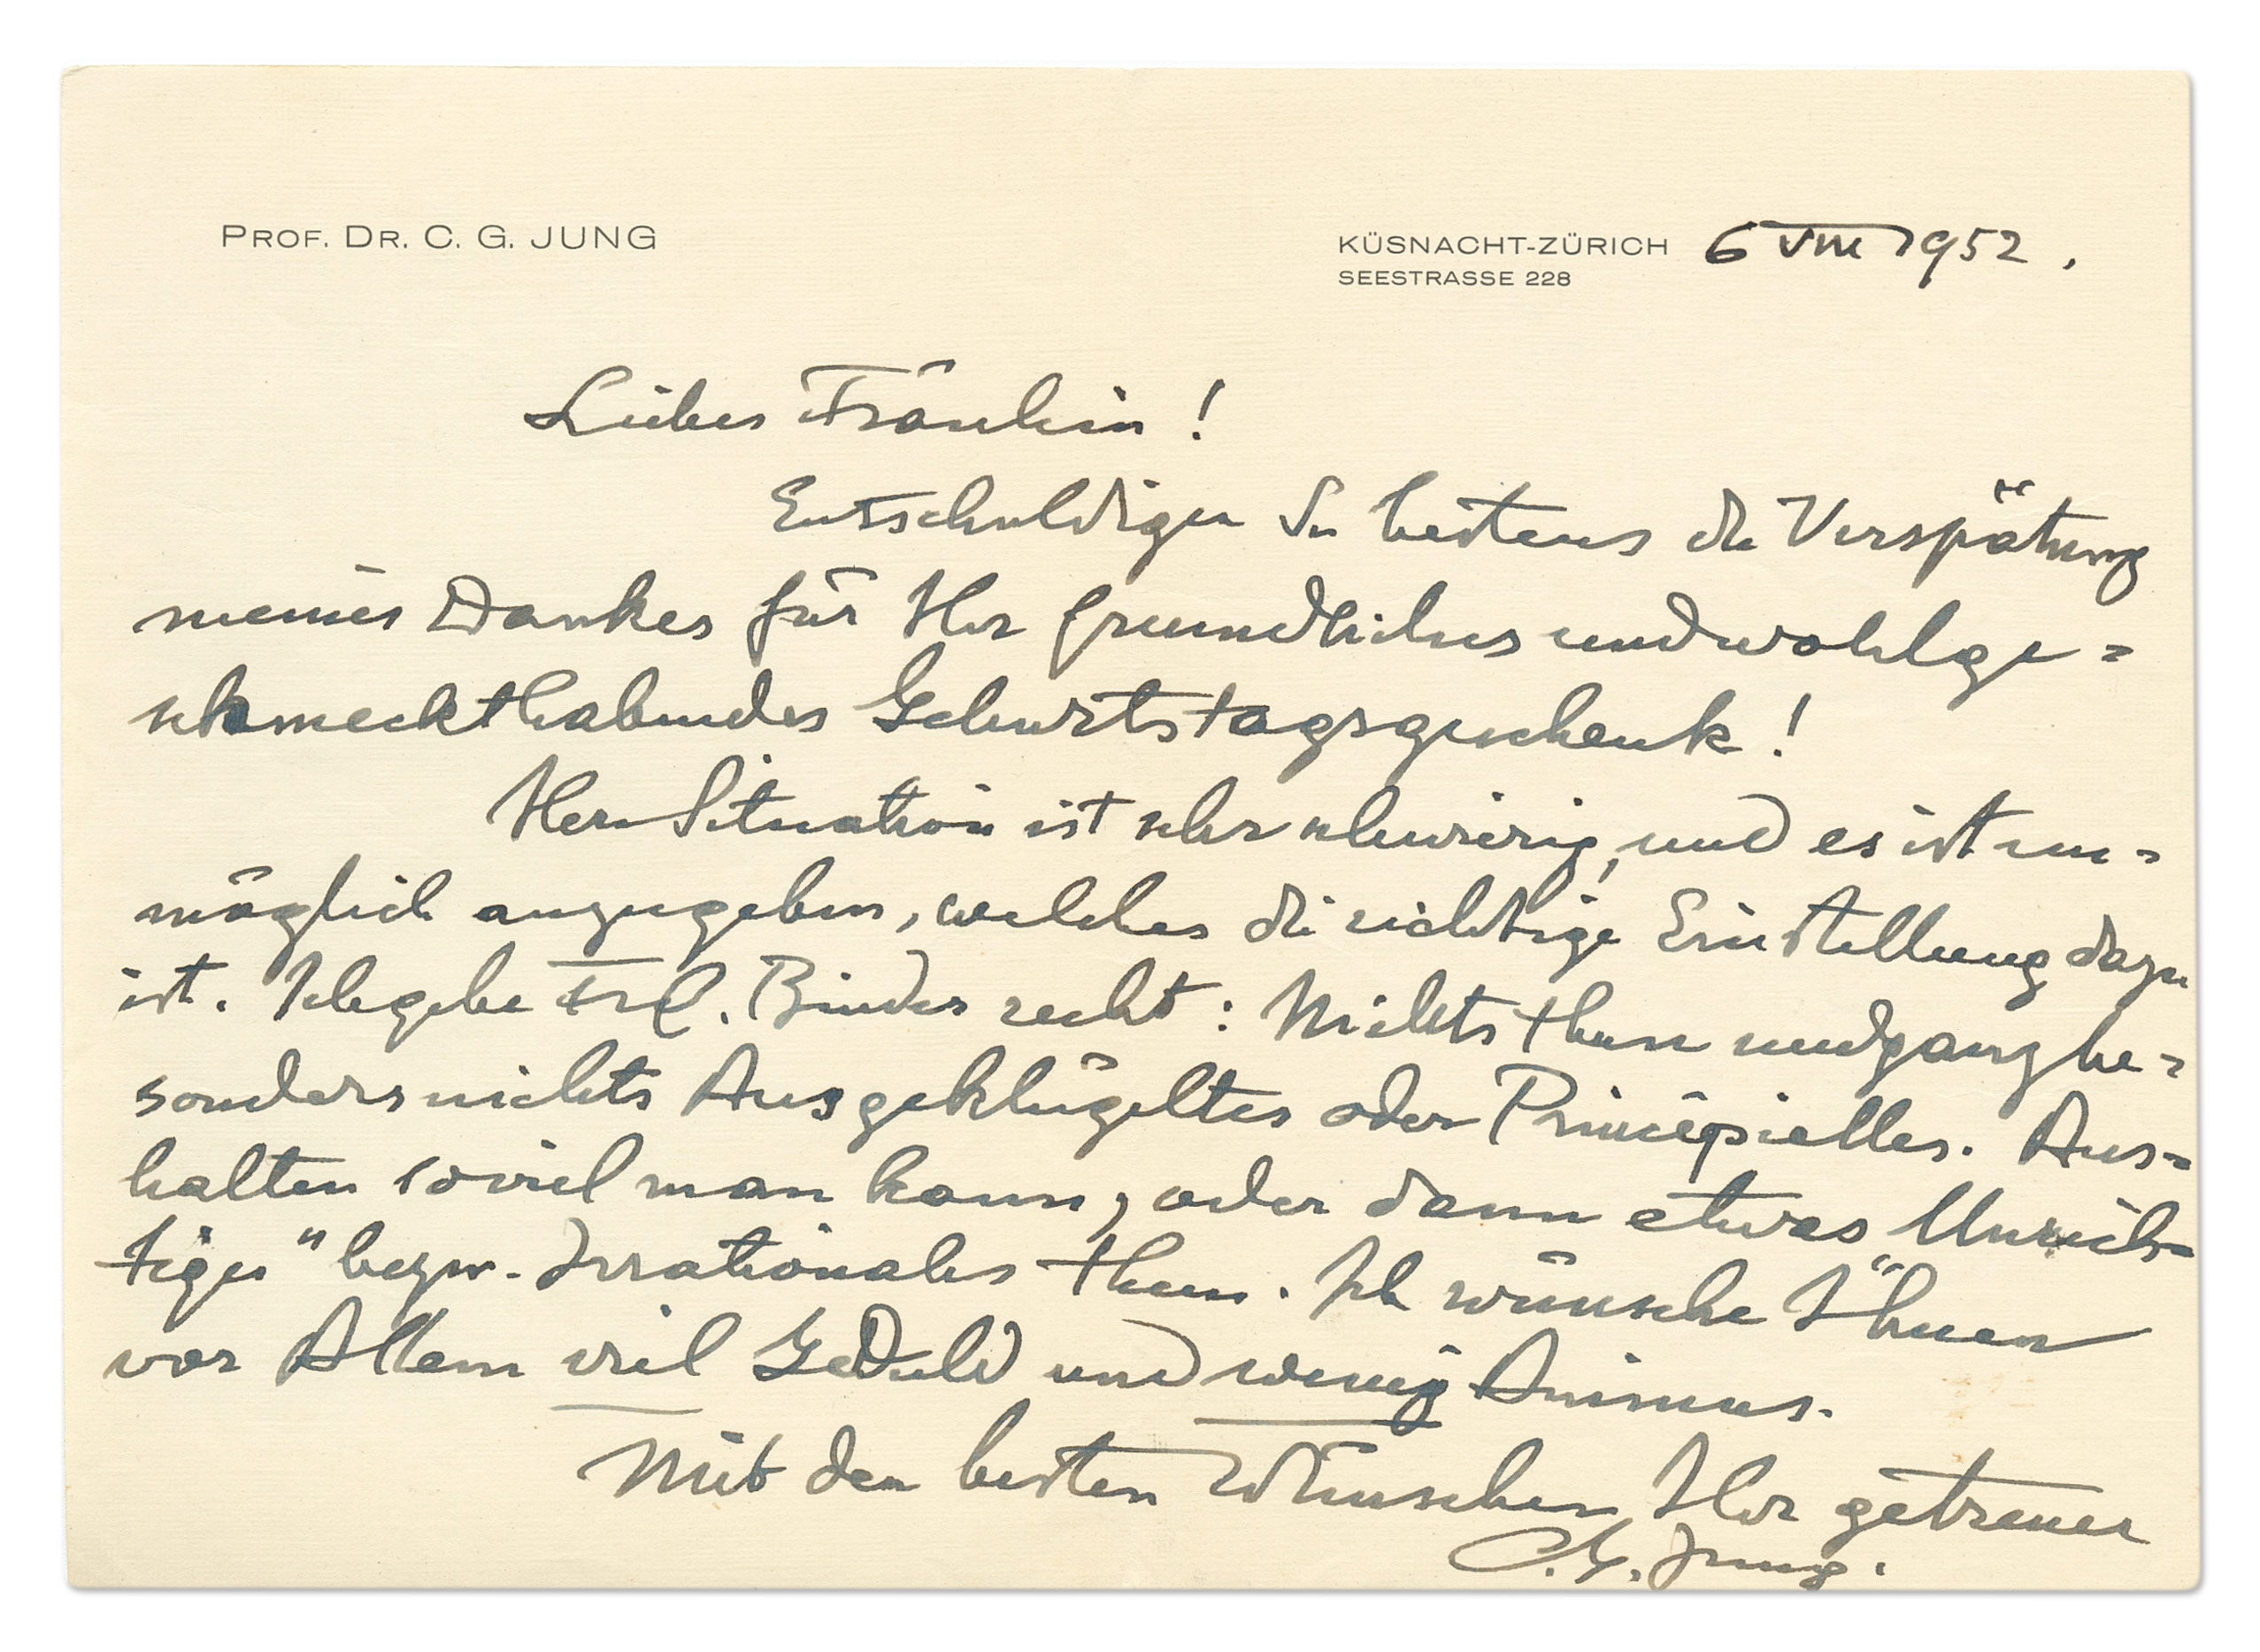 PROF. DR. C. G. JUNG
KÜSNACHT-ZÜRICH 6 VIII 1952.
SEESTRASSE 228
Liebes Fräulein!
Entschuldigen Sie bestens die Verspätung
meines Dankes für Ihr freundliches und wohlge=
schmeckthabendes Geburtstagsgeschenk!
Ihre Situation ist sehr schwierig, und es ist un=
möglich anzugeben, welches die richtige Einstellung dazu
ist. Ich gebe Frl. Binder recht: Nichts thun und ganz be=
sonders nichts Ausgeklügeltes oder Principielles. Aus=
halten soviel man kann, oder dann etwas Unrich=
tiges" bezw. Irrationales thun. Ich wünsche Ihnen
vor Allem viel Geduld und wenig Animus.
Mit den besten Wünschen Ihr getreuer
C. G. Jung.